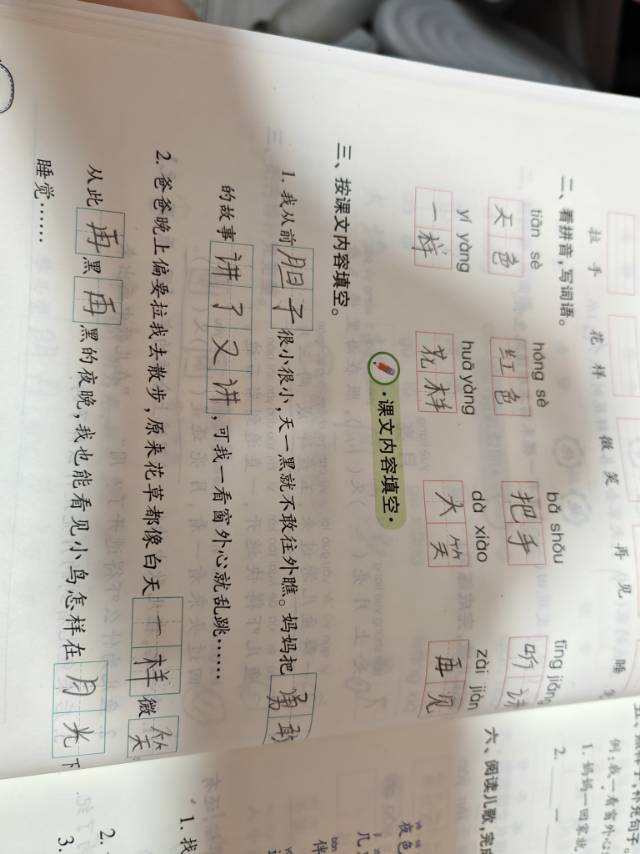 拉手 花样 微笑 再见 睡
二、看拼音,写词语。
tiān sè hóng sè bǎ shǒu tīng jiǎn
天色 红色 把手 听讲
yí yàng huā yàng dà xiào zài jiàn
一样 花样 大笑 再见
·课文内容填空·
三、按课文内容填空。
1. 我从前胆子很小很小,天一黑就不敢往外瞧。妈妈把勇敢
的故事讲了又讲,可我一看窗外心就乱跳……
2. 爸爸晚上偏要拉我去散步,原来花草都像白天一样微笑。
从此再黑再黑的夜晚,我也能看见小鸟怎样在月光下
睡觉……
例:我一看窗外心
1. 妈妈一回家就
2.
六、阅读儿歌,完
夜色
几
伴
1. 找
2.
3.